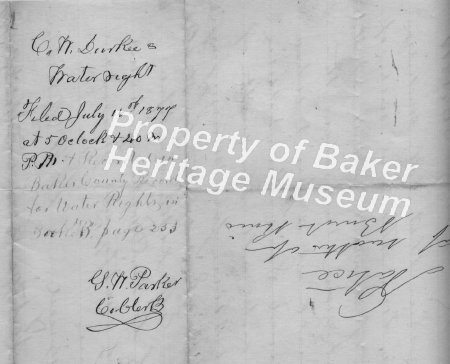 C. W. Durkee
Water right
Filed July 11th 1877
at 5 Oclock & 40 m
P.M. & Recorded in
Baker County Record
for Water Rights in
Book page 253
G. W. Parker
Co. Clerk
Property of Baker
Heritage Museum
Notice